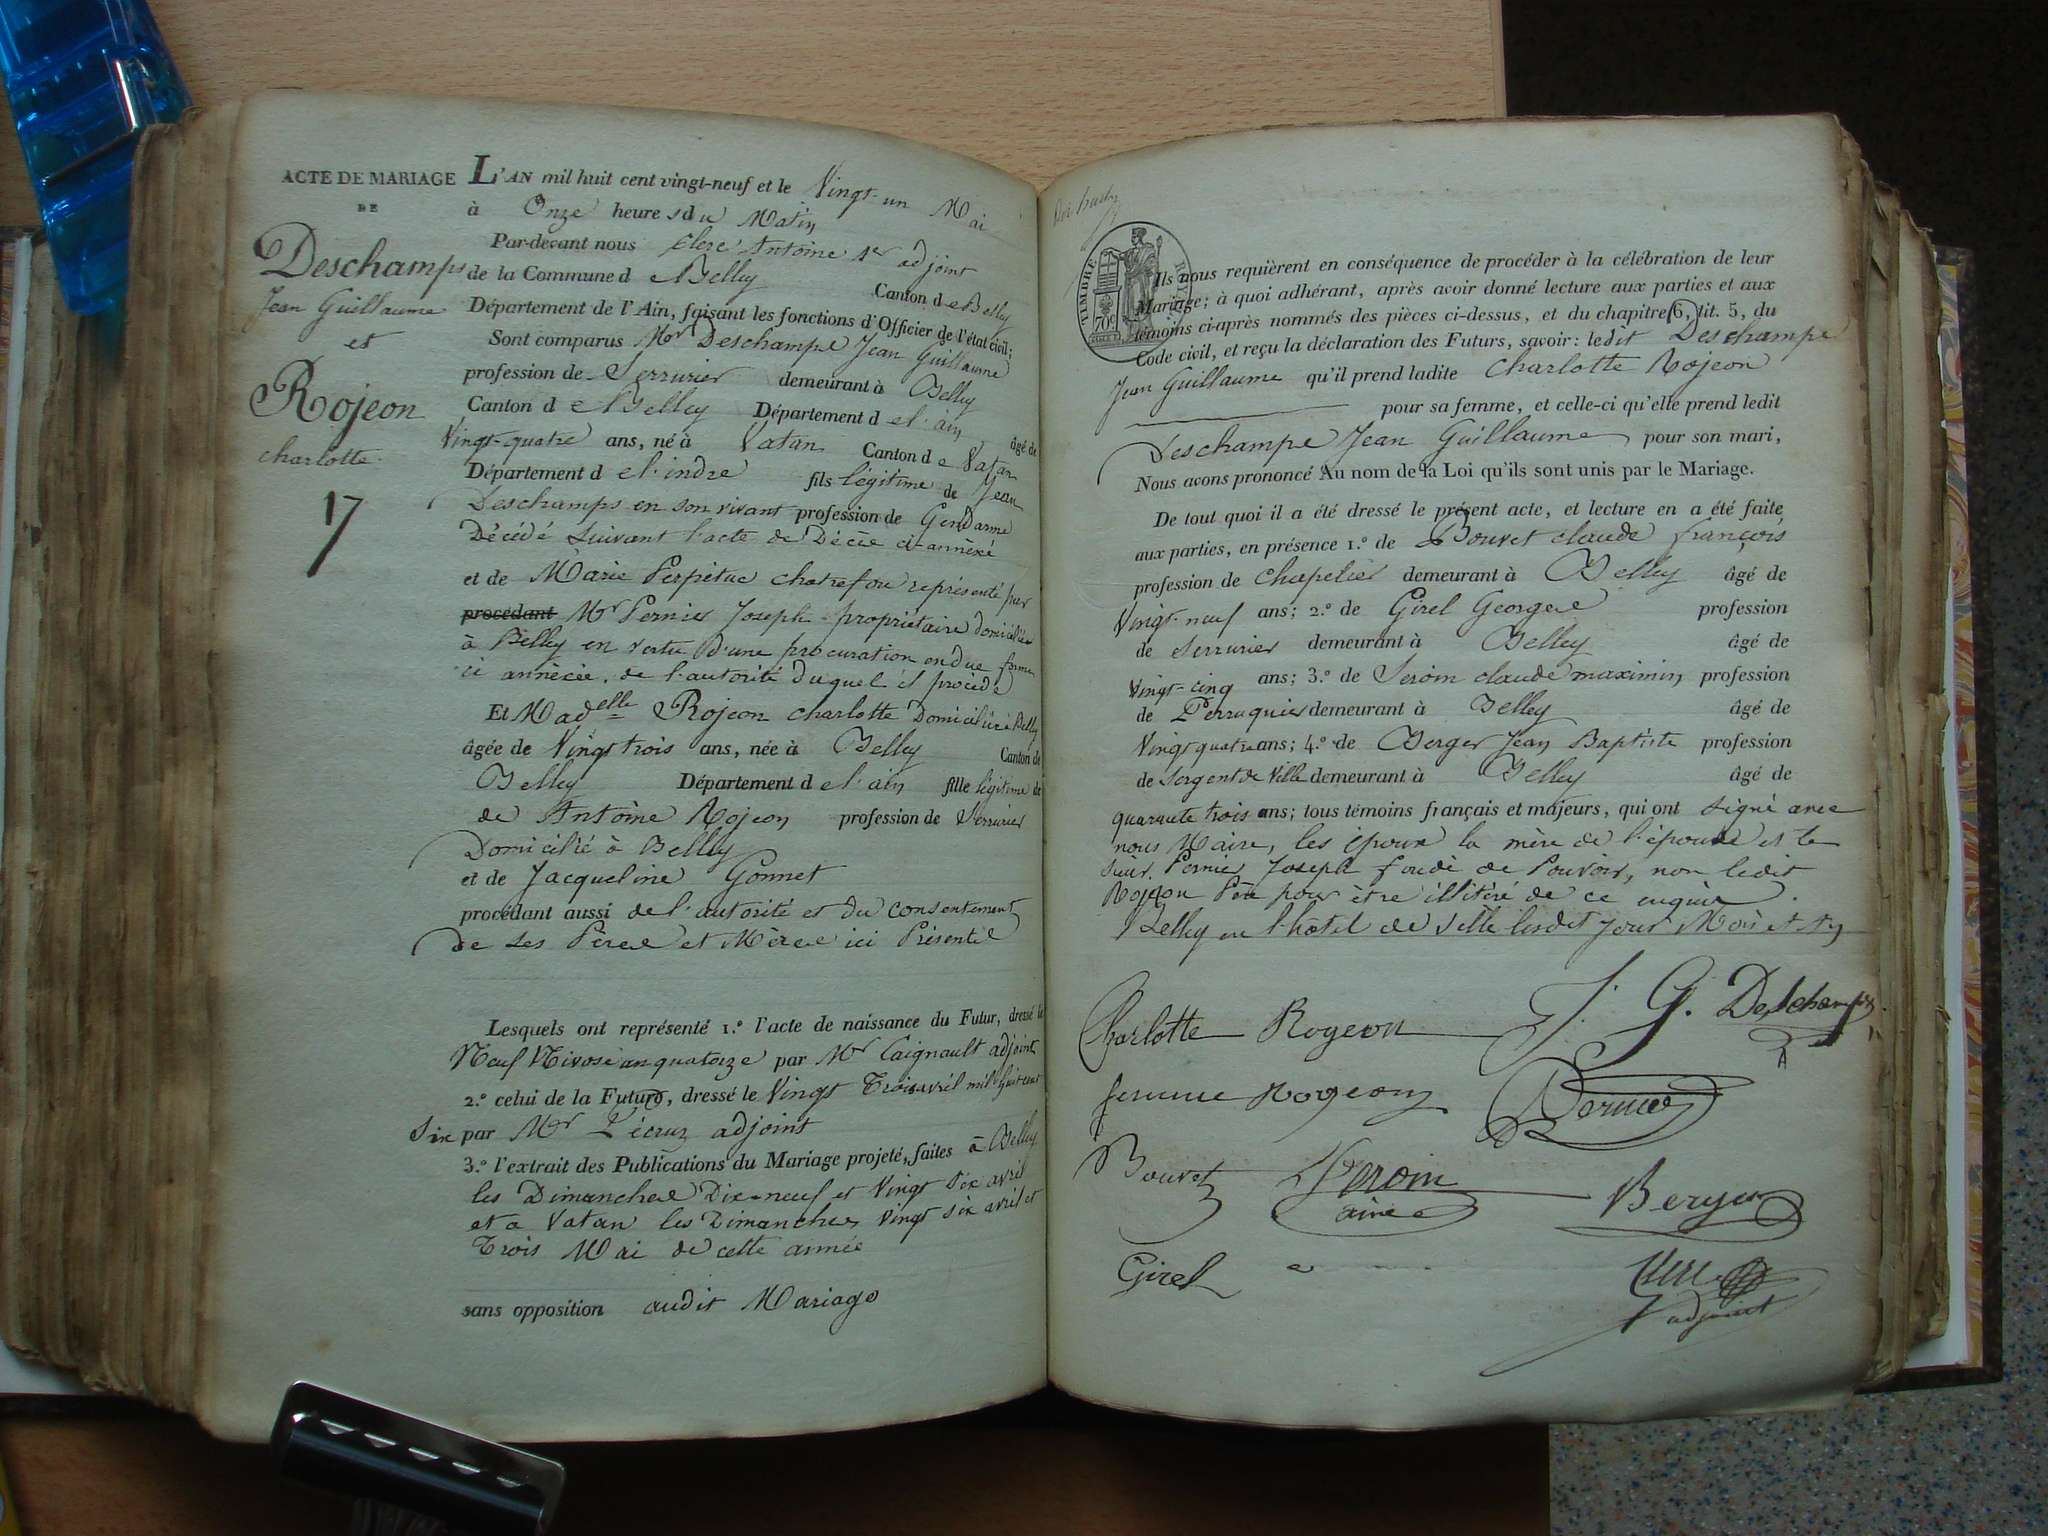 ACTE DE MARIAGE
DE
Deschamps
Jean Guillaume
et
Rojeon
charlotte
17
L'AN mil huit cent vingt-neuf et le Vingt-un Mai
à Onze heures du Matin
Par-devant nous Clerc Antoine 1er adjoint
de la Commune de Belley Canton de Belley
Département de l'Ain, faisant les fonctions d'Officier de l'état civil;
Sont comparus Mr Deschamps Jean Guillaume
profession de Serrurier demeurant à Belley
Canton de Belley Département de l'ain âgé de
Vingt-quatre ans, né à Vatan Canton de Vatan
Département de l'indre fils légitime de Jean
Deschamps en son vivant profession de Gendarme
Décédé suivant l'acte de Décès ci-annéxé
et de Marie Perpétue représenté par
procédant Mr Pernier Joseph propriétaire domicilié
à Belley en vertu d'une procuration en due forme
ci annéxée, de l'autorité duquel il procède
Et Madelle Rojeon charlotte Domiciliée à Belley
âgée de Vingt trois ans, née à Belley Canton de
Belley Département de l'ain fille légitime de
de Antoine Rojeon profession de Serrurier
Domicilié à Belley
et de Jacqueline Gonnet
procédant aussi de l'autorité et du consentement
de ses Père et Mère ici Présents
Lesquels ont représenté 1.º l'acte de naissance du Futur, dressé le
Neuf Nivose an quatorze par Mr Caignault adjoint
2.º celui de la Future, dressé le Vingt Trois avril mil huit cent
Six par Mr adjoint
3.º l'extrait des Publications du Mariage projeté, faites à Belley
les Dimanches Dix-neuf et Vingt Six avril
et a Vatan les Dimanches Vingt six avril et
Trois Mai de cette année
sans opposition audit Mariage
TIMBRE ROYAL
70c
Ils nous requièrent en conséquence de procéder à la célébration de leur
Mariage; à quoi adhérant, après avoir donné lecture aux parties et aux
témoins ci-après nommés des pièces ci-dessus, et du chapitre 6, tit. 5, du
Code civil, et reçu la déclaration des Futurs, savoir: ledit Deschamps
Jean Guillaume qu'il prend ladite Charlotte Rojeon
pour sa femme, et celle-ci qu'elle prend ledit
Deschamps Jean Guillaume pour son mari,
Nous avons prononcé Au nom de la Loi qu'ils sont unis par le Mariage.
De tout quoi il a été dressé le présent acte, et lecture en a été faite
aux parties, en présence 1.º de Bouvet claude françois
profession de chapelier demeurant à Belley âgé de
Vingt-neuf ans; 2.º de Girel George profession
de Serrurier demeurant à Belley âgé de
Vingt-cinq ans; 3.º de Seroin claude maximin profession
de Perruquier demeurant à Belley âgé de
Vingt quatre ans; 4.º de Berger Jean Baptiste profession
de Sergent de Ville demeurant à Belley âgé de
quarante trois ans; tous témoins français et majeurs, qui ont signé avec
nous Maire, les époux la mère de l'épouse et le
Sieur Pernier Joseph fondé de Pouvoir, non ledit
Rojeon Père pour être illitéré de ce enquis.
Belley en l'hotel de Ville lesdit jour Mois et An
Charlotte Rogeon J. G. Deschamps
femme Rogeon Pernier
Bouvet Seroin ainé Berger
Girel Clerc
adjoint